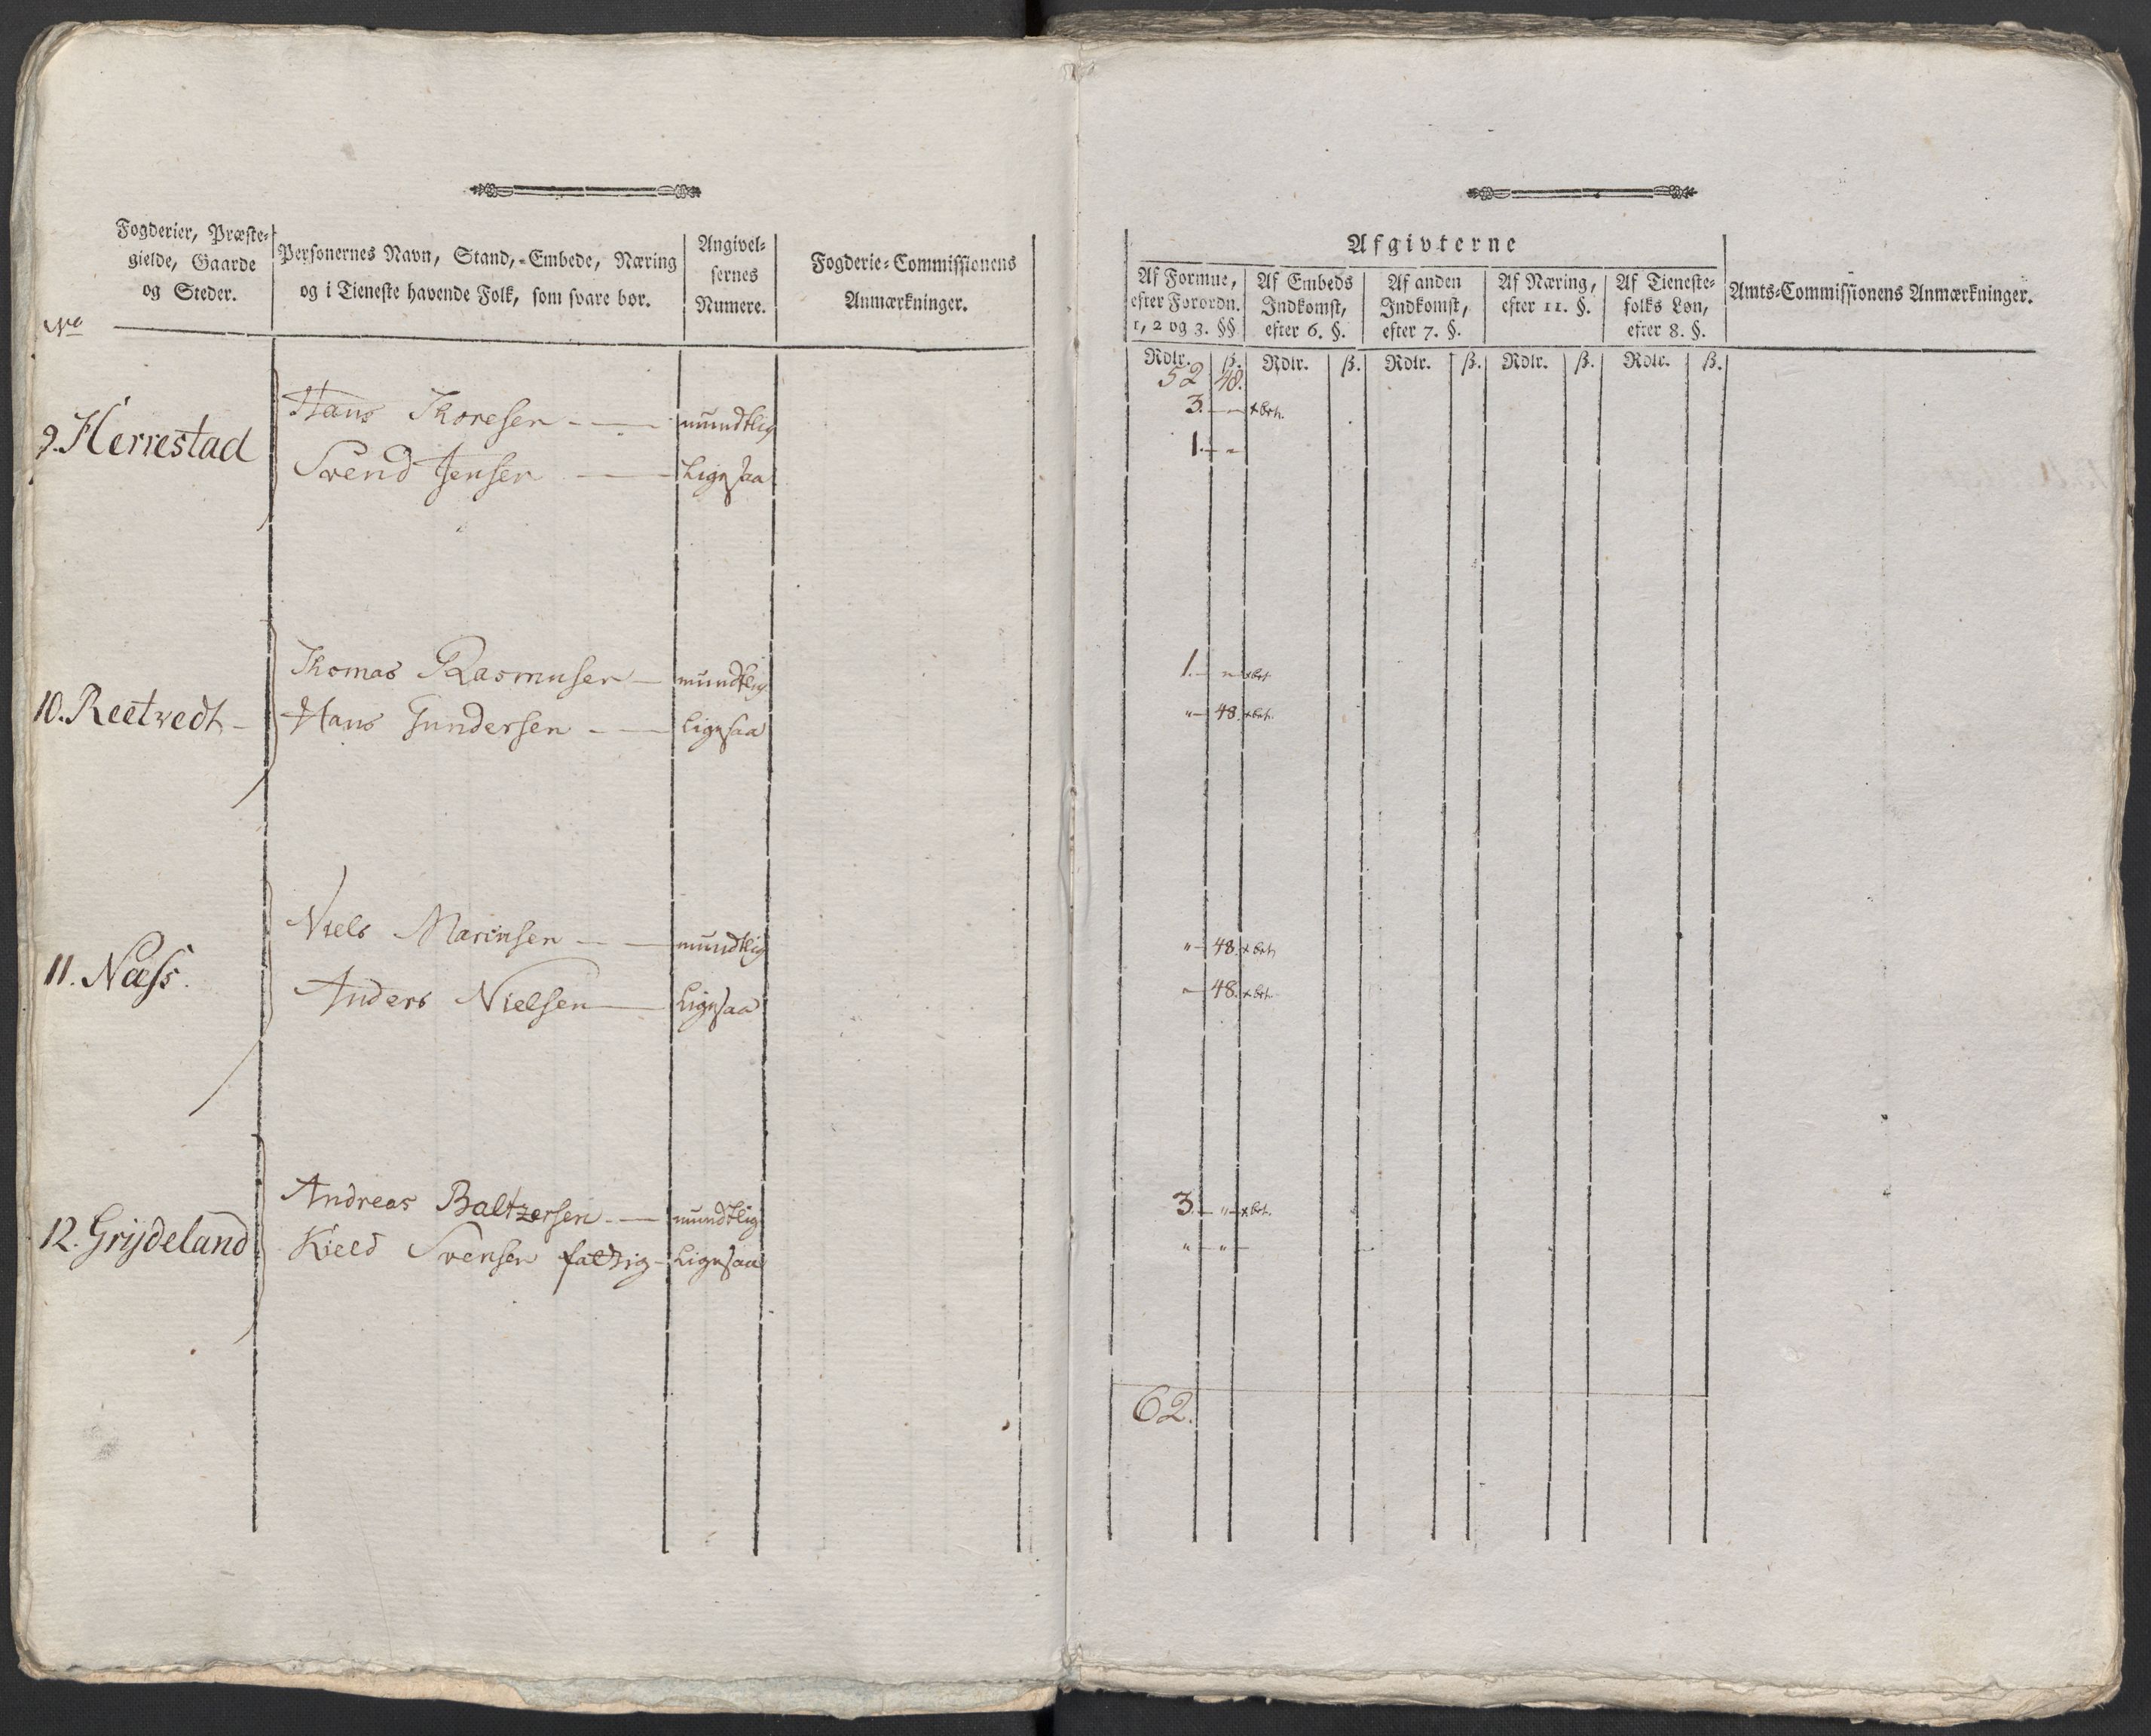 Fogderier, Præste-
gielde, Gaarde
og Steder.
Personernes Navn, Stand, Embede, Næring
og i Tieneste havende Folk, som svare bør.
Angivel-
sernes
Numere.
Fogderie-Commissionens
Anmærkninger.
No
9. Herrestad
Hans Thoresen - — mundtlig
Svend Jensen — Ligesaa
10. Reetvedt -
Thomas Rasmusen — mundtlig
Hans Gundersen - — Ligesaa
11. Næss.
Niels Marcusen - — mundtlig
Anders Nielsen — Ligesaa
12. Grijdeland
Andreas Baltzersen - — mundtlig
Kield Svensen fattig - Ligesaa
Afgivterne
Af Formue,
efter Forordn.
1, 2 og 3. §§
Af Embeds
Indkomst,
efter 6. §.
Af anden
Indkomst,
efter 7. §.
Af Næring,
efter 11. §.
Af Tieneste-
folks Løn,
efter 8. §.
Amts-Commissionens Anmærkninger.
Rdlr. ß. Rdlr. ß. Rdlr. ß. Rdlr. ß. Rdlr. ß.
52 48.
3. — " × bet.
1. — "
1. — " × bet
" — 48. × bet.
" — 48. × bet
" 48. × bet.
3. — " × bet.
" — " —
62.